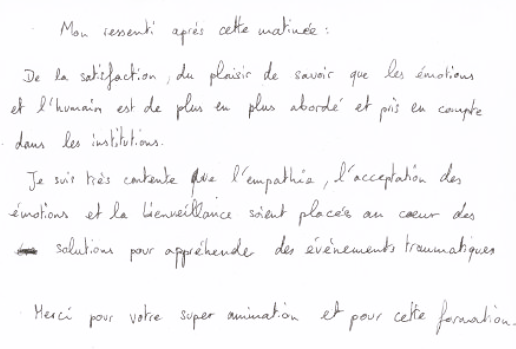 Mon ressenti après cette matinée :
De la satisfaction, du plaisir de savoir que les émotions
et l'humain est de plus en plus abordé et pris en compte
dans les institutions.
Je suis très contente que l'empathie, l'acceptation des
émotions et la bienveillance soient placées au coeur des
solutions pour appréhende des événements traumatiques
Merci pour votre super animation et pour cette formation.